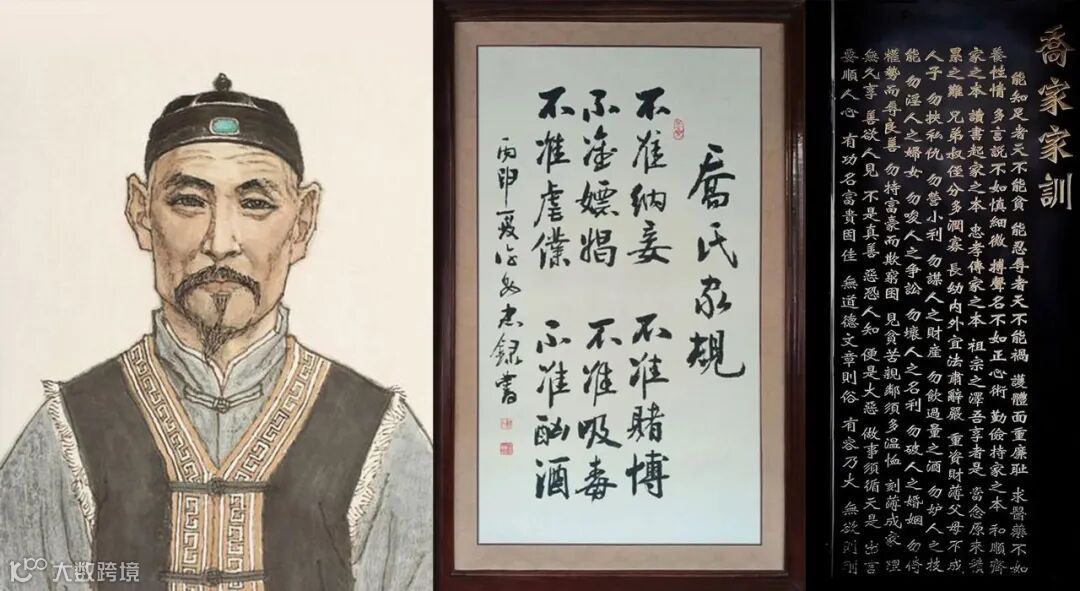 喬氏家規
不准納妾 不准賭博
不准嫖娼 不准吸毒
不准虐僕 不准酗酒
丙申夏 忠録書
喬家家訓
能知足者天不能貧 能忍辱者天不能禍 護體面而重廉耻 求醫藥不如
養性情 多言説不如慎細微 搏聲名不如正心術 勤儉持家之本 和順齊
家之本 讀書起家之本 忠孝傳家之本 祖宗之澤吾享者是 當念原來積
累之難 兄弟叔侄分多潤寡 長幼内外宜法肅辭嚴 重資財薄父母不成
人子 勿挾私仇 勿營小利 勿謀人之財産 勿飲過量之酒 勿妒人之技
能 勿淫人之婦女 勿唆人之争訟 勿壞人之名利 勿破人之婚姻 勿倚
權勢而辱良善 勿恃富豪而欺窮困 見貧苦親鄰須多温恤 刻薄成家 理
無久享 善欲人見 不是真善 惡恐人知 便是大惡 做事須循天是 出言
要順人心 有功名富貴固佳 無道德文章則俗 有容乃大 無欲則剛
大数跨境